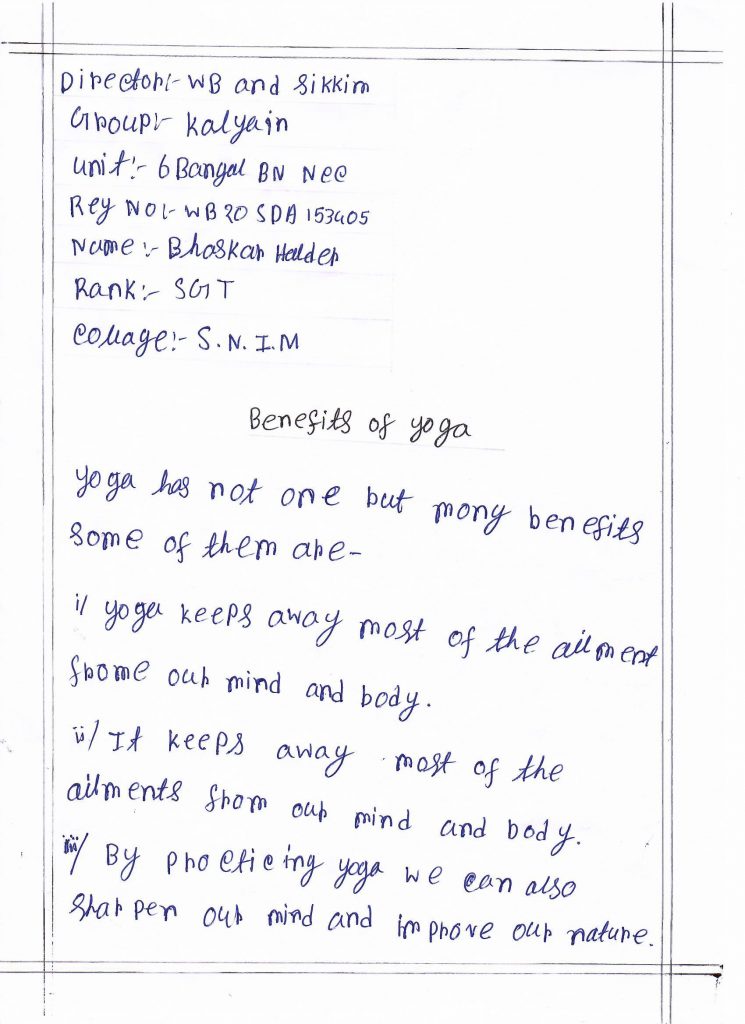 Director:- WB and Sikkim
Group:- Kalyain
Unit:- 6 Bangal BN NCC
Rey No:- WB20 SDA 153405
Name:- Bhaskar Halder
Rank:- SGT
Collage:- S.N.I.M
Benefits of yoga
yoga has not one but mony benefits
some of them are-
i/ yoga keeps away most of the ailment
frome our mind and body.
ii/ It keeps away most of the
ailments from our mind and body.
iii/ By procticing yoga we can also
sharpen our mind and improve our nature.